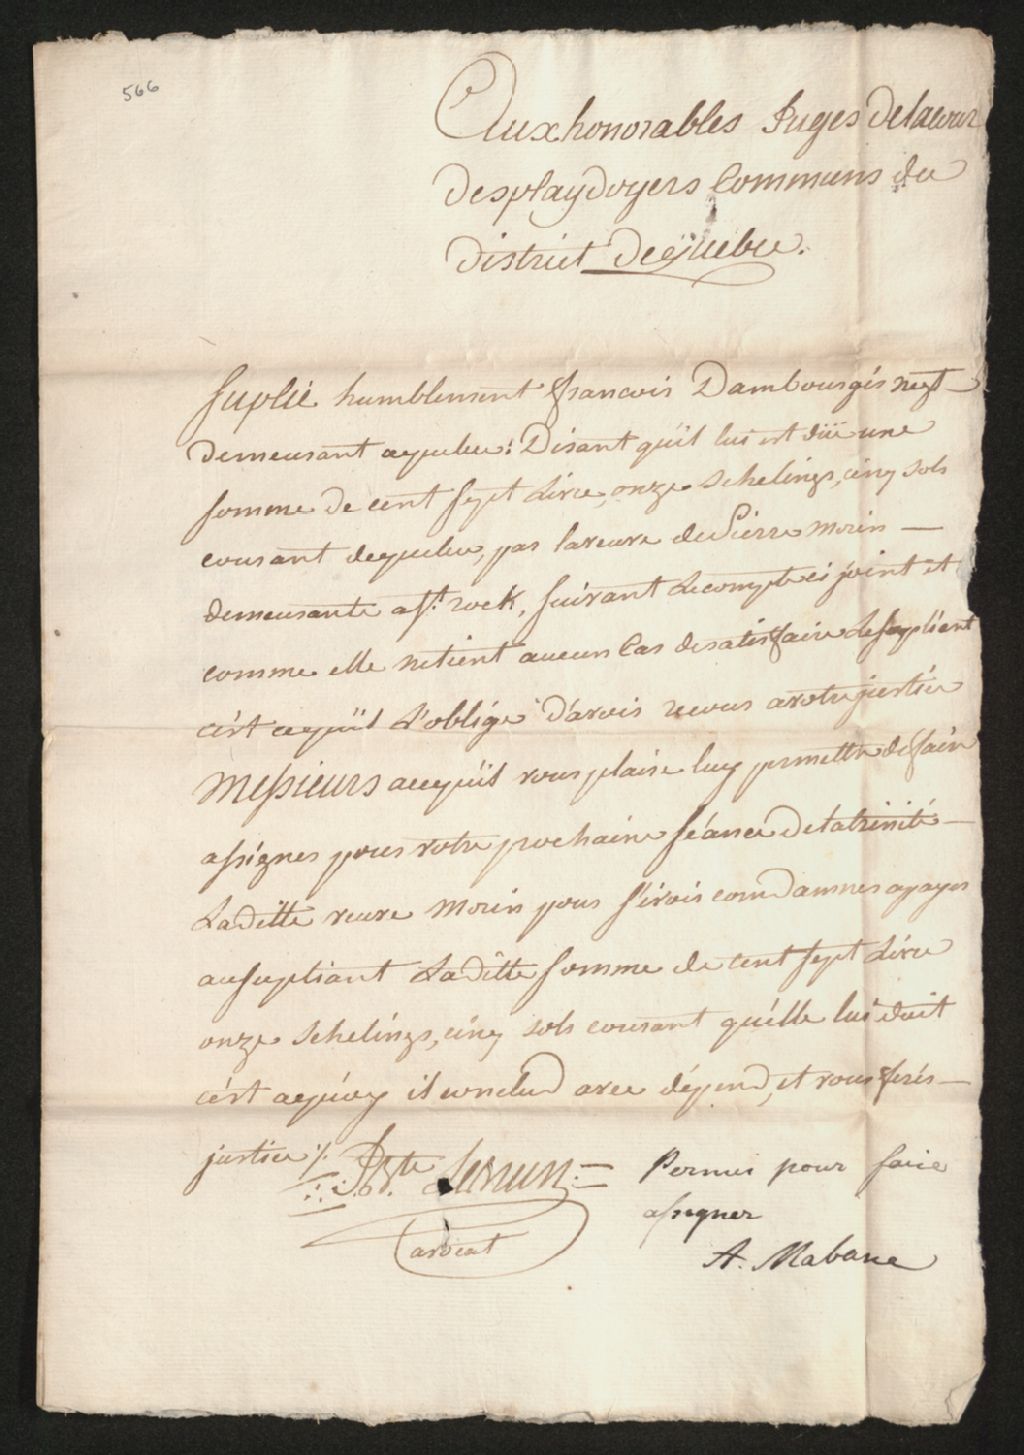 566
Aux honorables Juges Delacour
Desplaydoyers Communs du
District Dequebec.
Suplie humblement francois Dambourgés negt
demeurant aquebec: Disant quïl lui est düe une
somme de cent sept Livre, onze schelings, cinq sols
courant dequebec, par laveuve de Pierre Morin —
demeurante a St. rock, suivant Lecompte ci joint et
comme elle netient aucun Cas desatisfaire Lesupliant
cést cequïl L'oblige D'avoir recours avotre justice
Messieurs acequïl vous plaise luy permettre de faire
assigner pour votre prochaine séance Delatrinité —
Laditte veuve Morin pour s'ivoir comdamner apayer
ausupliant Laditte somme de cent sept Livre
onze schelings, cinq sols courant qu'élle lui doit
cést aquóy il conclud avec dépend, et vous ferés —
justice ./.
J. Bte. LeBrun
avocat
Permis pour faire
assigner
A. Mabane